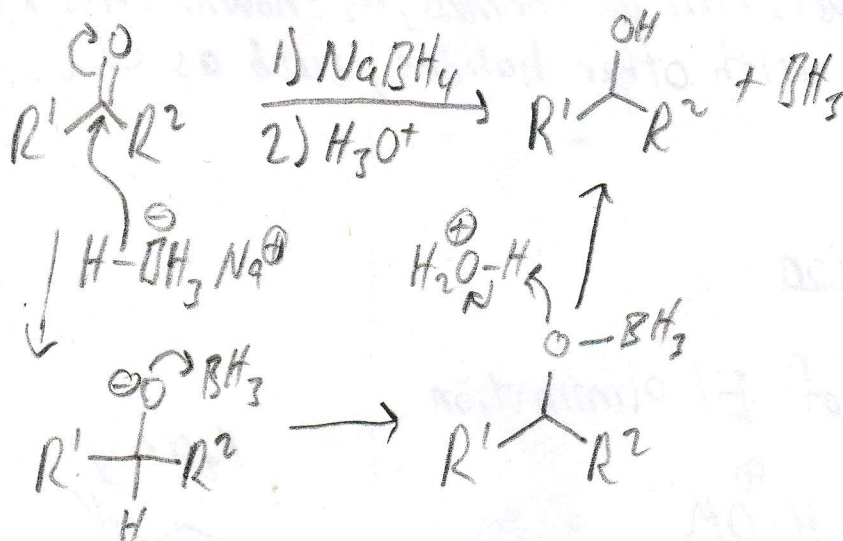 O
R¹ R²
1) NaBH₄
2) H₃O⁺
OH
R¹ R² + BH₃
⊖
H–BH₃ Na⊕
⊕
H₂O–H
⊖O BH₃
R¹ R²
H
O–BH₃
R¹ R²